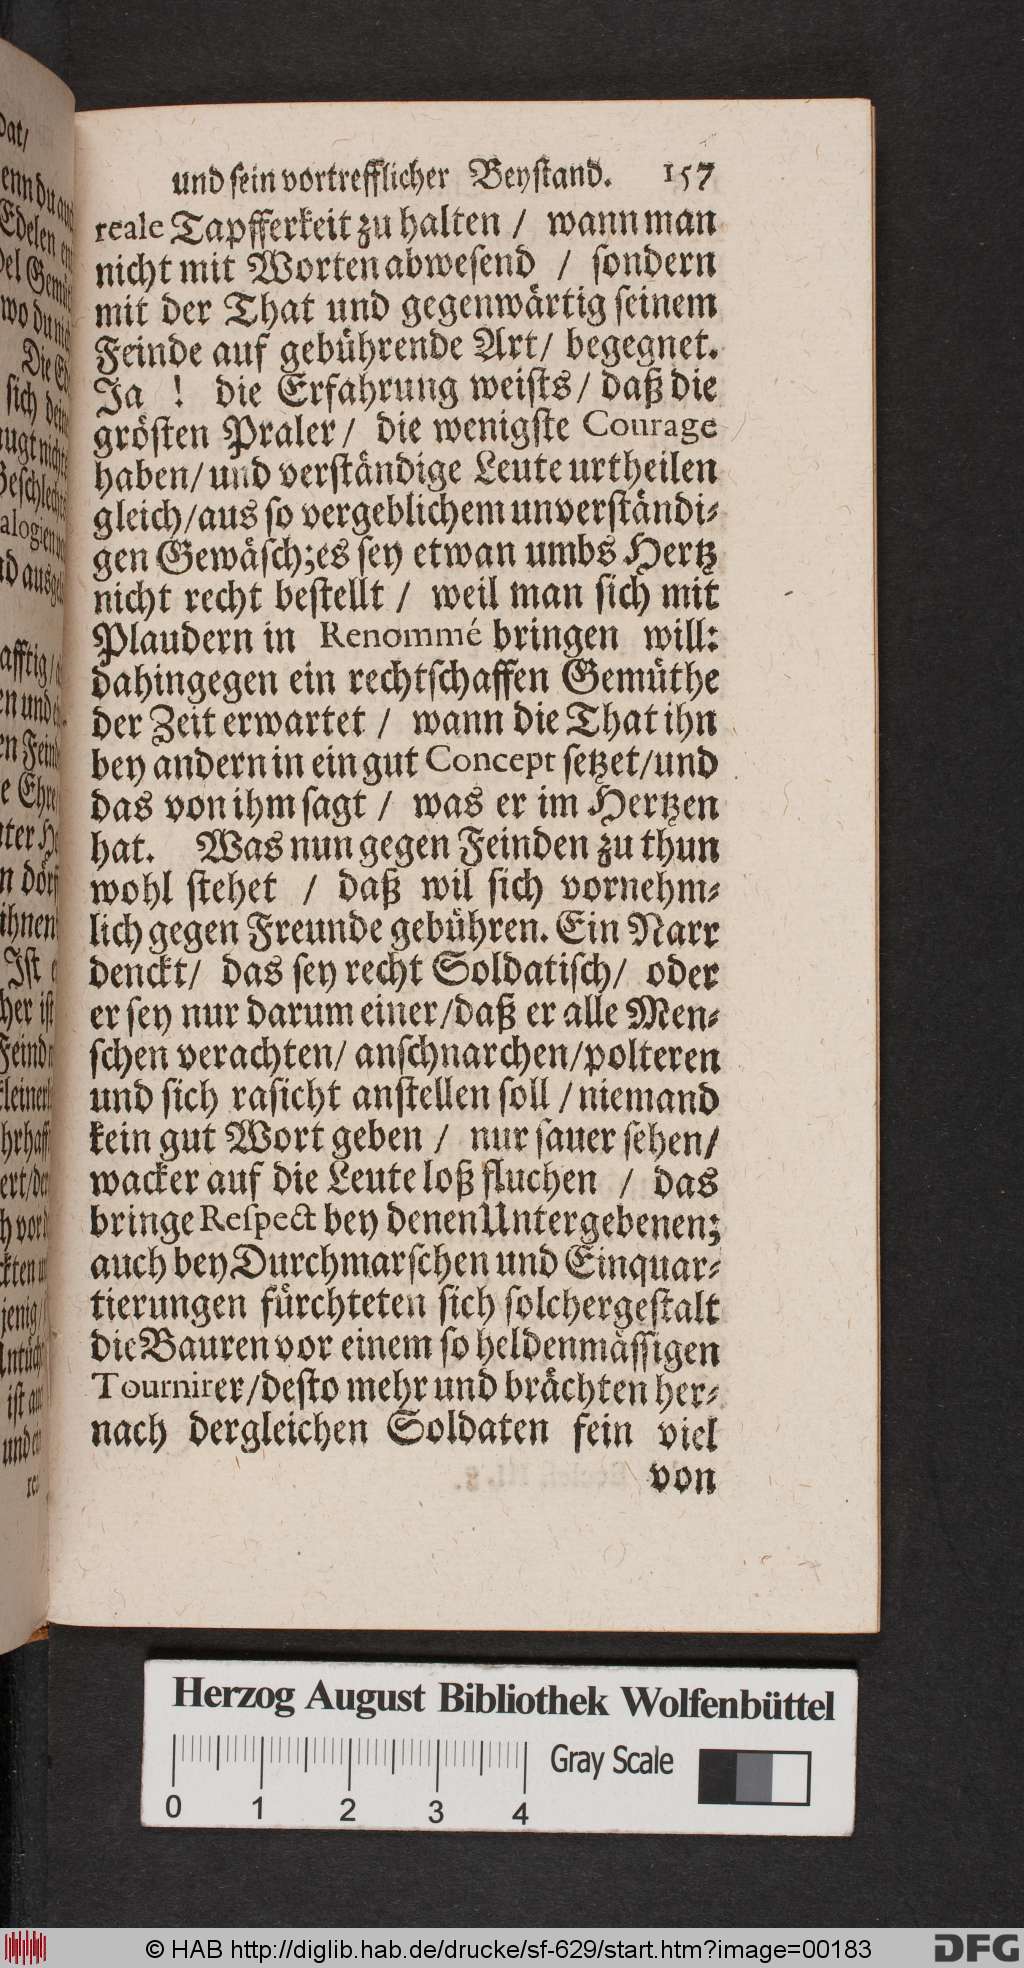 und sein vortrefflicher Beystand. 157
reale Tapfferkeit zu halten / wann man
nicht mit Worten abwesend / sondern
mit der That und gegenwärtig seinem
Feinde auf gebührende Art/ begegnet.
Ja ! die Erfahrung weists/ daß die
grösten Praler/ die wenigste Courage
haben/ und verständige Leute urtheilen
gleich/aus so vergeblichem unverständi-
gen Gewäsch;es sey etwan umbs Hertz
nicht recht bestellt / weil man sich mit
Plaudern in Renommé bringen will:
dahingegen ein rechtschaffen Gemüthe
der Zeit erwartet / wann die That ihn
bey andern in ein gut Concept setzet/und
das von ihm sagt / was er im Hertzen
hat. Was nun gegen Feinden zu thun
wohl stehet / daß wil sich vornehm-
lich gegen Freunde gebühren. Ein Narr
denckt/ das sey recht Soldatisch/ oder
er sey nur darum einer/daß er alle Men-
schen verachten/ anschnarchen/polteren
und sich rasicht anstellen soll / niemand
kein gut Wort geben / nur sauer sehen/
wacker auf die Leute loß fluchen / das
bringe Respect bey denen Untergebenen;
auch bey Durchmarschen und Einquar-
tierungen fürchteten sich solchergestalt
die Bauren vor einem so heldenmässigen
Tournirer/desto mehr und brächten her-
nach dergleichen Soldaten fein viel
von
Herzog August Bibliothek Wolfenbüttel
Gray Scale
0 1 2 3 4
© HAB http://diglib.hab.de/drucke/sf-629/start.htm?image=00183
DFG